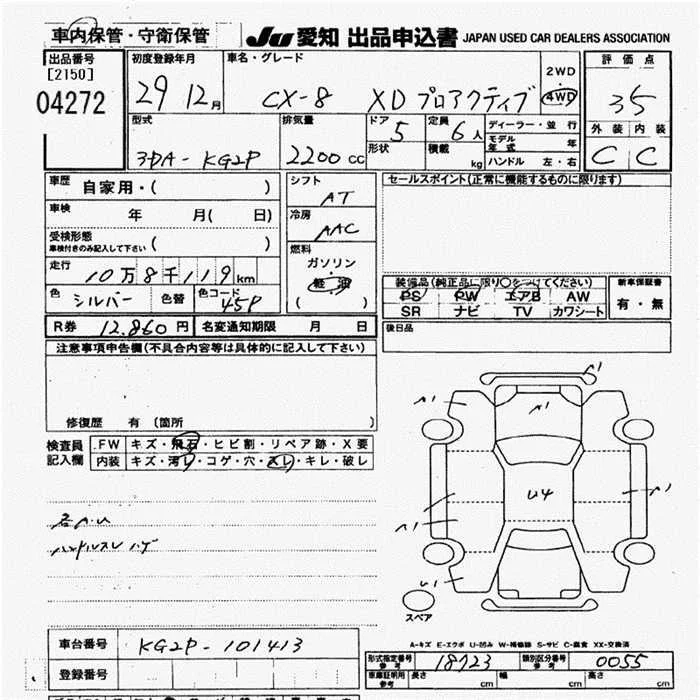 車内保管・守衛保管
JU 愛知 出品申込書 JAPAN USED CAR DEALERS ASSOCIATION
出品番号
[2150]
04272
初度登録年月
29 12月
車名・グレード
CX-8 XD プロアクティブ
2WD
4WD
評価点
35
外装 内装
C C
型式
3DA-KG2P
排気量
2200cc
ドア 5
形状
定員 6人
積載 kg
ディーラー・並行
モデル年式 年
ハンドル 左・右
車歴 自家用・( )
車検 年 月( 日)
受検形態
車検付きのみ記入して下さい ( )
走行 10万8千119km
色 シルバー 色替 色コード 45P
シフト AT
冷房 AAC
燃料
ガソリン・
軽油
( )
セールスポイント(正常に機能するものに限ります)
装備品(純正品に限り○をつけてください)
PS PW エアB AW
SR ナビ TV カワシート
新車保証書
有・無
R券 12,860円 名変通知期限 月 日
後日品
注意事項申告欄(不具合内容等は具体的に記入して下さい)
修復歴 有 〔箇所 〕
検査員
記入欄
.FW キズ・飛石・ヒビ割・リペア跡・X要
内装 キズ・汚レ・コゲ・穴・スレ・キレ・破レ
各A.U
ハンドルスレ ハゲ
A1
A1
A1
U4
A1
A1
U1
スペア
A-キズ E-エクボ U-凹み W-補修跡 S-サビ C-腐食 XX-交換済
車台番号 KG2P-101413
登録番号
形式指定番号 参考 18723
類別区分番号 参考 0055
車庫証明用 参考 長さ cm 幅 cm 高さ cm